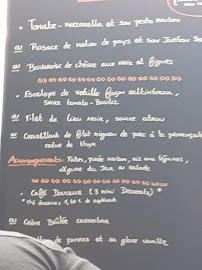 • Tomate - Mozzarella et son pesto maison
ou Rosace de melon de pays et son Jambon
ou Bavaroise de chèvre aux noix et figues
• Escalope de volaille façon saltimbocca,
sauce tomate - Basilic
ou Filet de lieu noir, sauce citron
ou Croustillant de filet mignon de porc à la provençale
crème de thym
Accompagnements:
légume du jour ou salade
• Café Douceur (3 mini Desserts) *
* Thé douceur : 1,60 € de supplément
ou Crème Brûlée carambar
de pommes et sa glace vanille